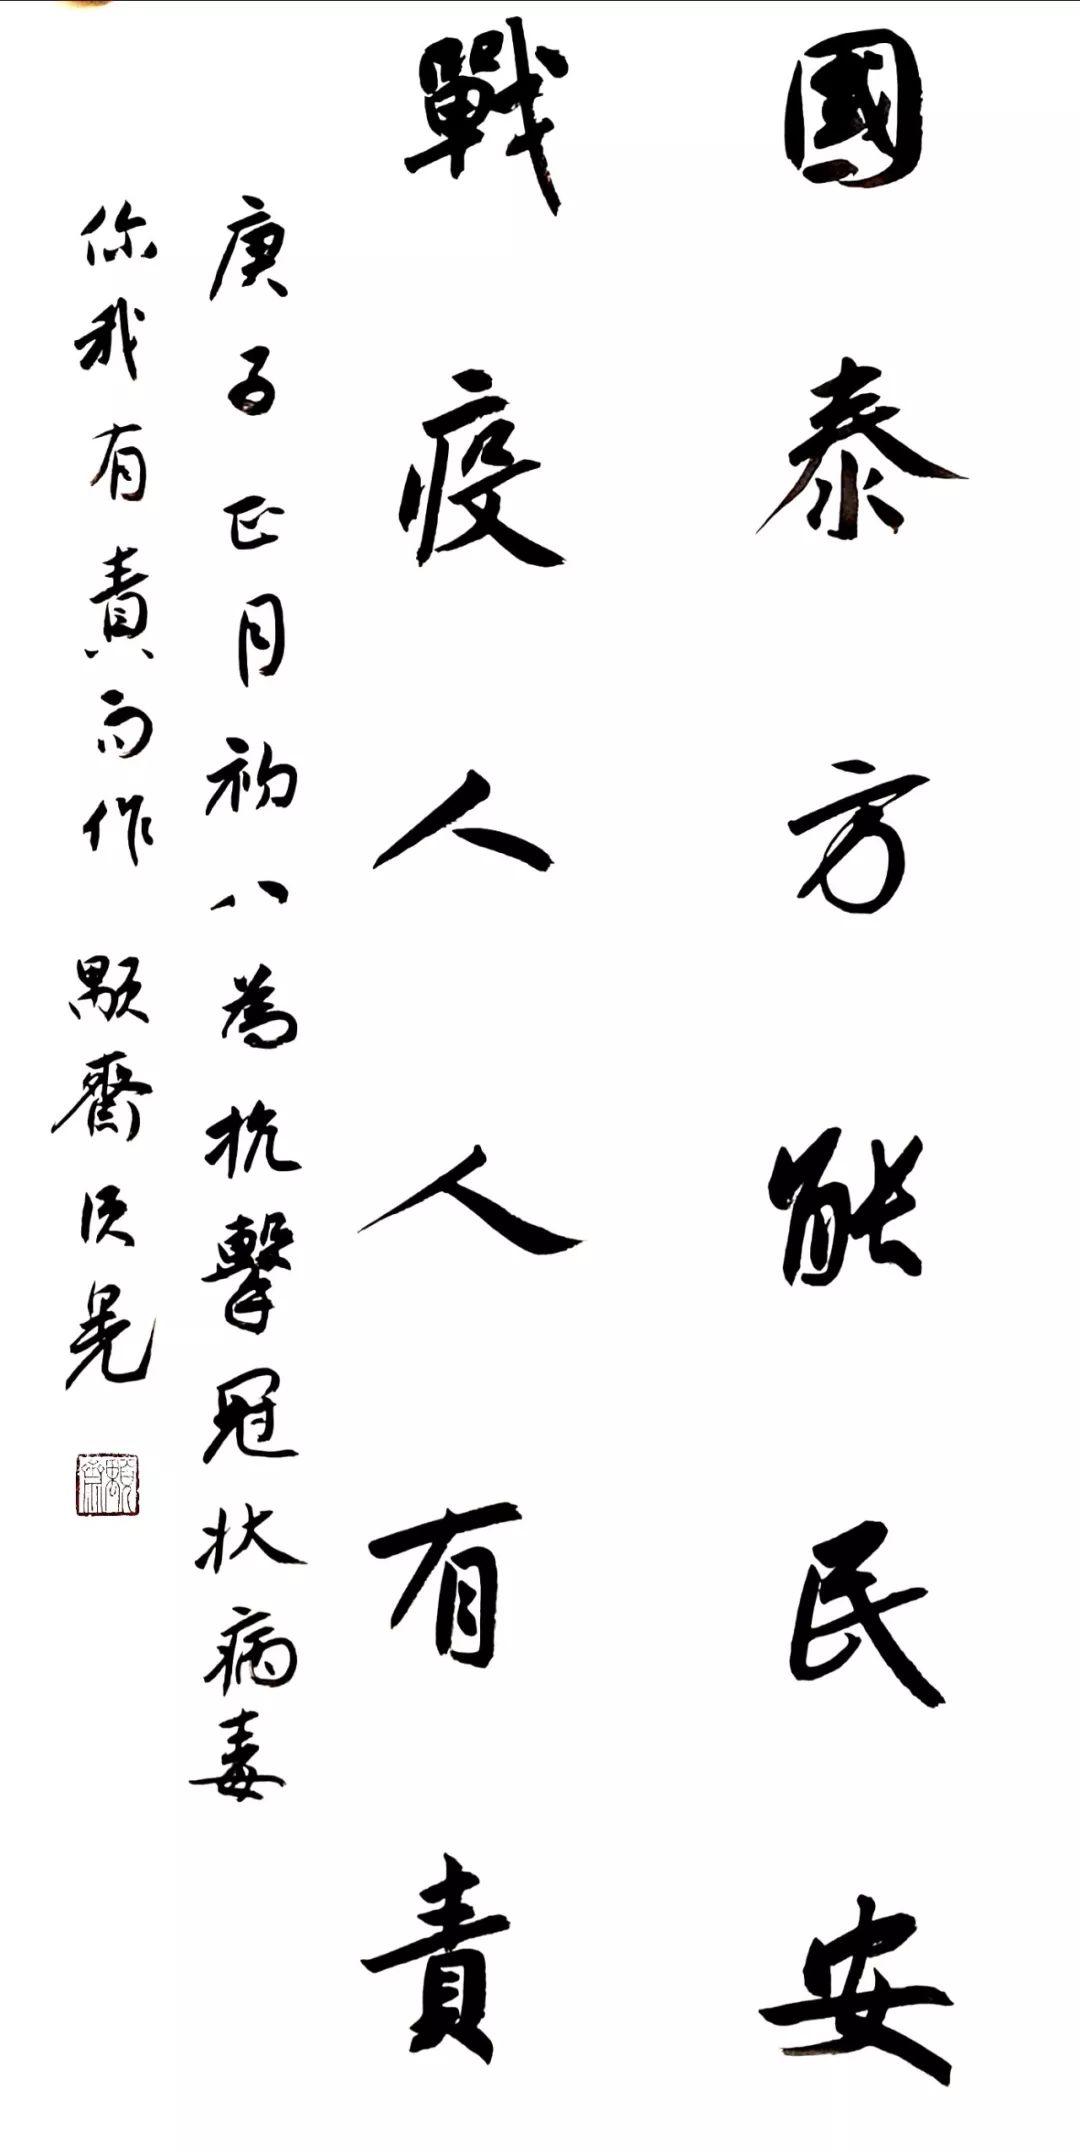 國泰方能民安
戰疫人人有責
庚子正月初八為抗擊冠狀病毒
你我有責而作 顒齋 晃